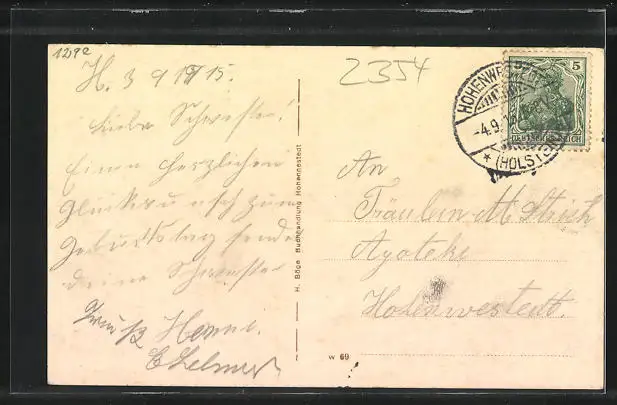 1292
H. 3 9 1915.
2354
Liebe Schwester!
Einen herzlichen
Glückwunsch zum
Geburtstag sendet
deine Schwester
Gruß Hanni.
H. Böge Buchhandlung Hohenwestedt
w 69
5
DEUTSCHES REICH
HOHENWESTEDT
-4.9.15
* (HOLSTEIN)
An
Fräulein M.
Apoteke
Hohenwestedt.